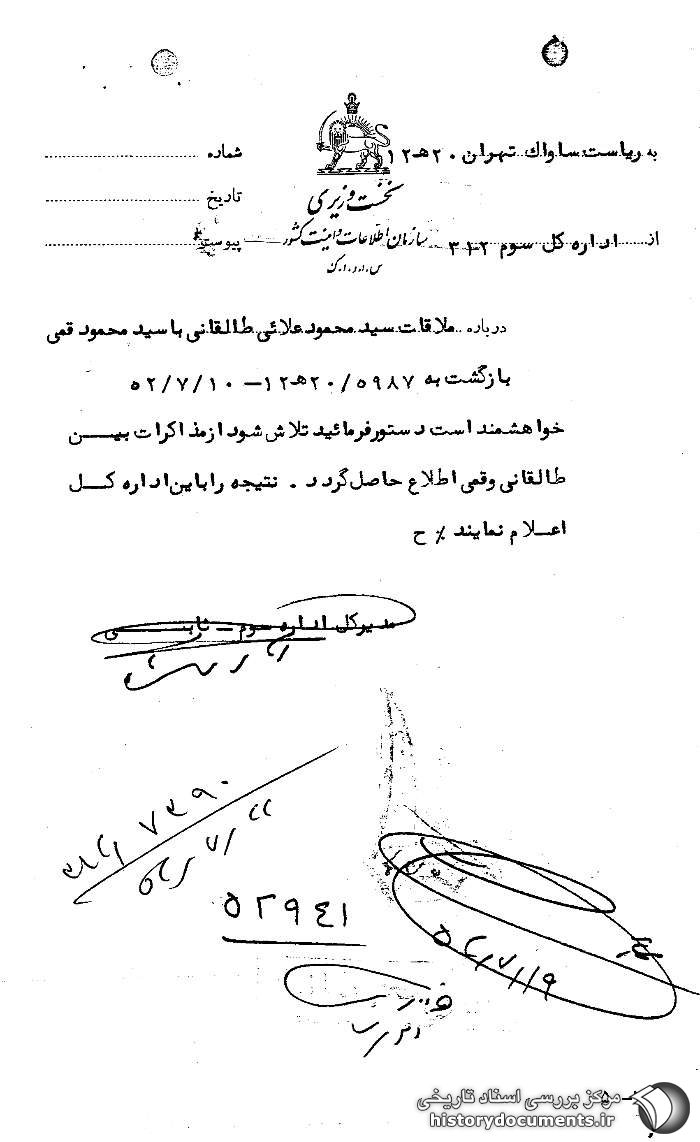 به ریاست ساواک تهران ۲۰ هـ ۱۲
شماره
نخست وزیری
تاریخ
از اداره کل سوم ۳۱۲
سازمان اطلاعات و امنیت کشور
پیوست
س.ا.و.ا.ک
درباره ملاقات سید محمود علائی طالقانی با سید محمود قمی
بازگشت به ۵۹۸۷/ ۲۰هـ ۱۲ – ۵۲/۷/۱۰
خواهشمند است دستور فرمائید تلاش شود از مذاکرات بیــن
طالقانی و قمی اطلاع حاصل گردد . نتیجه را باین اداره کــل
اعــلام نمایند ٪ ح
مدیرکل اداره سوم – ثابتــی
۷۳۹۰
۵۲۹۴۱
۵۲/۷/۱۹
مرکز بررسی اسناد تاریخی
historydocuments.ir